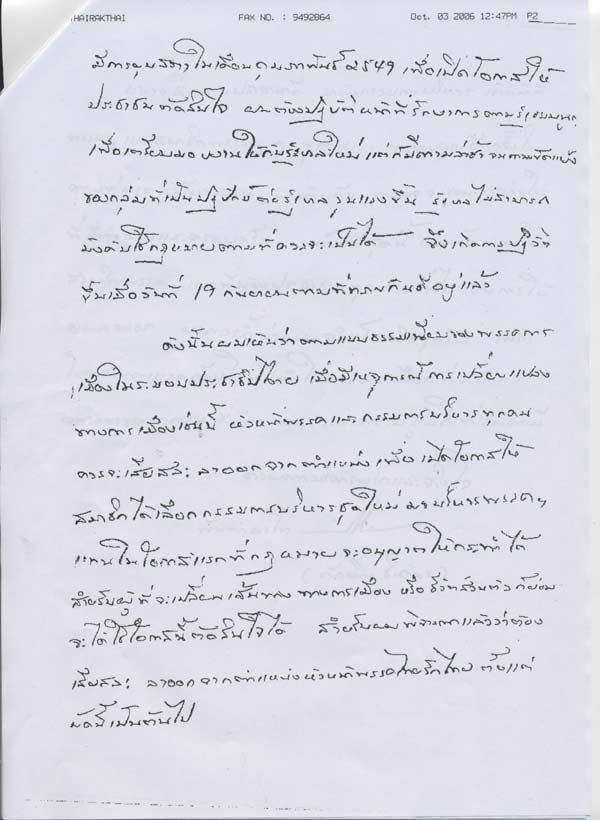 HAIRAKTHAI FAX NO. : 9492864 Oct. 03 2006 12:47PM P2
มีการยุบสภาฯ ในเดือนกุมภาพันธ์ ๒๕49 เพื่อเปิดโอกาสให้
ประชาชนตัดสินใจ ผมต้องปฏิบัติหน้าที่รักษาการตามรัฐธรรมนูญ
เพื่อเตรียมมอบงานให้กับรัฐบาลใหม่ แต่ก็มีความล่าช้า จนความขัดแย้ง
ของกลุ่มที่เป็นปฏิปักษ์ต่อรัฐบาล รุนแรงขึ้น รัฐบาลไม่สามารถ
บังคับใช้กฎหมายตามที่ควรจะเป็นได้ จึงเกิดการปฏิวัติ
ขึ้นเมื่อวันที่ 19 กันยายนตามที่ทราบกันดีอยู่แล้ว
ดังนั้นผมเห็นว่าตามแบบธรรมเนียมของพรรคการ
เมืองในระบอบประชาธิปไตย เมื่อมีเหตุการณ์การเปลี่ยนแปลง
ทางการเมืองเช่นนี้ หัวหน้าพรรคและกรรมการบริหารทุกคน
ควรจะเสียสละ ลาออกจากตำแหน่ง เพื่อเปิดโอกาสให้
สมาชิกได้เลือกกรรมการบริหารชุดใหม่ มาบริหารพรรคฯ
แทนในโอกาสแรกที่กฎหมายจะอนุญาตให้กระทำได้
สำหรับผู้ที่จะเปลี่ยนเส้นทางทางการเมือง หรือชีวิตส่วนตัวก็ย่อม
จะได้ใช้โอกาสนี้ตัดสินใจได้ สำหรับผมพิจารณาแล้วว่าต้อง
เสียสละ ลาออกจากตำแหน่งหัวหน้าพรรคไทยรักไทย ตั้งแต่
บัดนี้เป็นต้นไป